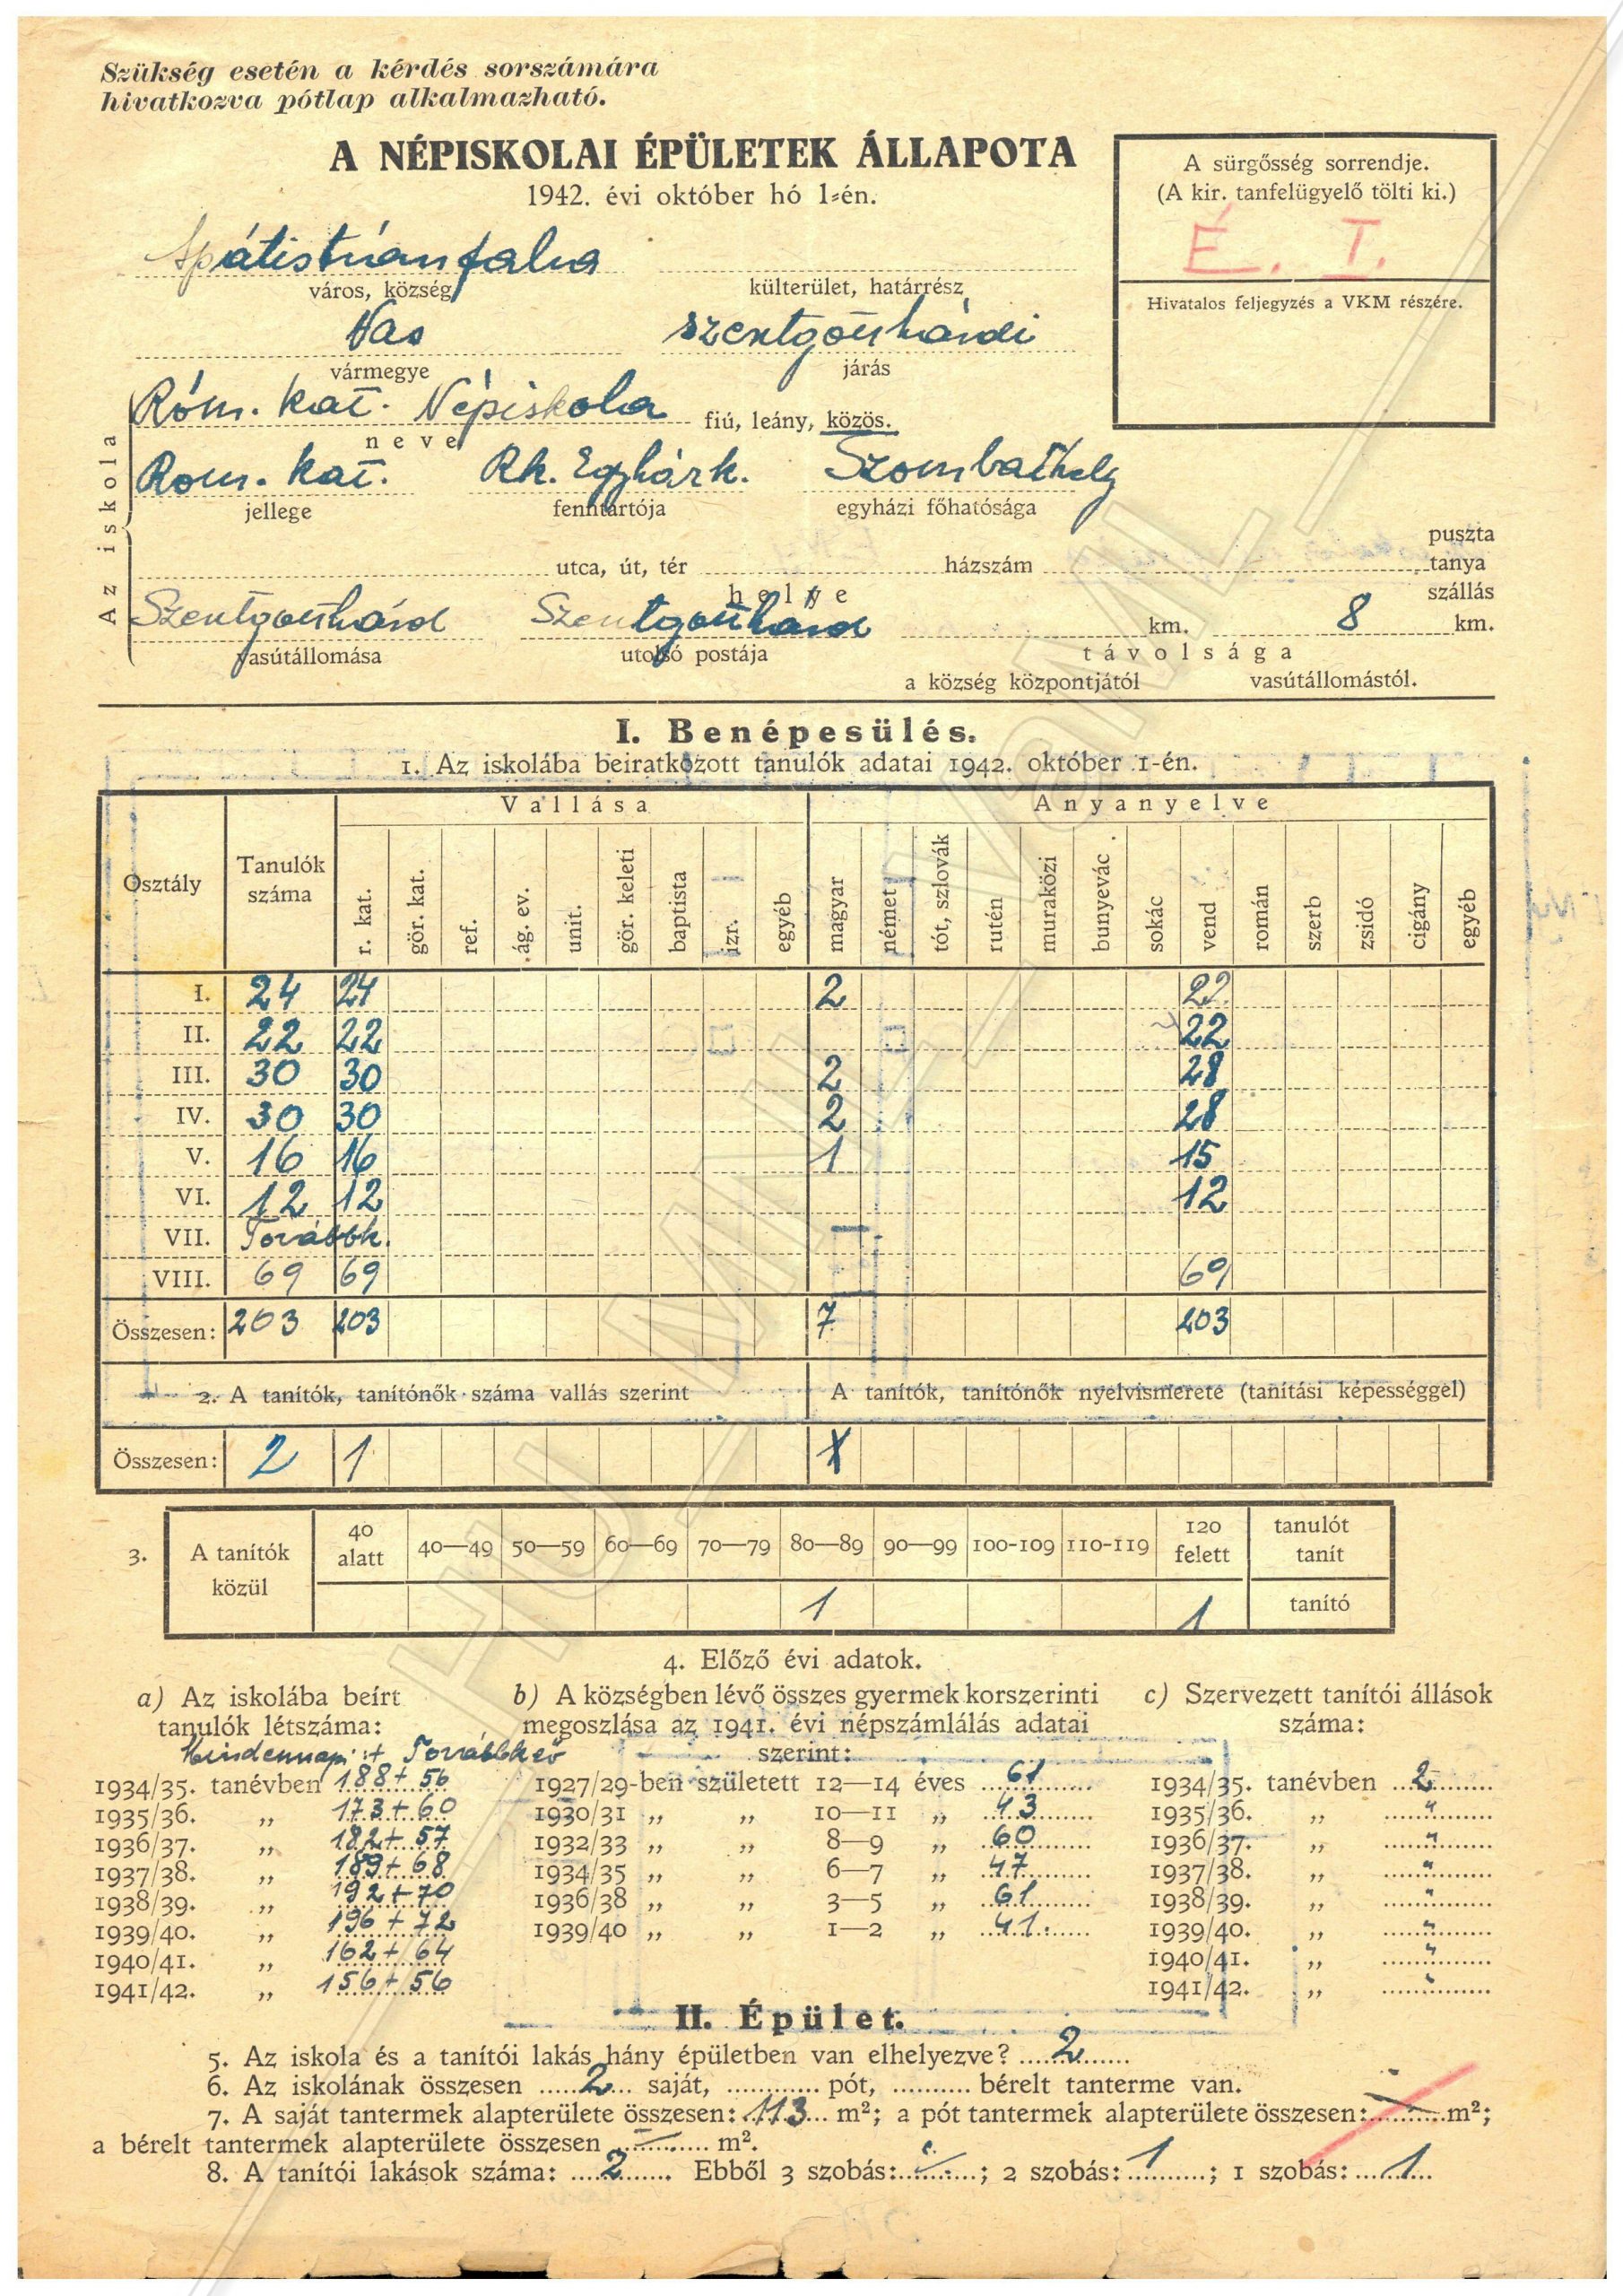 Szükség esetén a kérdés sorszámára
hivatkozva pótlap alkalmazható.
A NÉPISKOLAI ÉPÜLETEK ÁLLAPOTA
1942. évi október hó 1-én.
A sürgősség sorrendje.
(A kir. tanfelügyelő tölti ki.)
É. I.
Hivatalos feljegyzés a VKM részére.
Apátistvánfalva
város, község külterület, határrész
Vas szentgotthárdi
vármegye járás
Az iskola
Róm. kat. Népiskola fiú, leány, közös.
neve
Rom. kat. Rk. Egyházk. Szombathely
jellege fenntartója egyházi főhatósága
puszta
utca, út, tér házszám tanya
helye szállás
Szentgotthárd Szentgotthárd km. 8 km.
vasútállomása utolsó postája távolsága
a község központjától vasútállomástól.
I. Benépesülés.
1. Az iskolába beiratkozott tanulók adatai 1942. október 1-én.
Osztály Tanulók száma Vallása Anyanyelve
r. kat. gör. kat. ref. ág. ev. unit. gör. keleti baptista izr. egyéb magyar német tót, szlovák rutén muraközi bunyevác sokác vend román szerb zsidó cigány egyéb
I. 24 24 2 22
II. 22 22 22
III. 30 30 2 28
IV. 30 30 2 28
V. 16 16 1 15
VI. 12 12 12
VII. Továbbk.
VIII. 69 69 69
Összesen: 203 203 7 203
2. A tanítók, tanítónők száma vallás szerint A tanítók, tanítónők nyelvismerete (tanítási képességgel)
Összesen: 2 1
3. A tanítók közül 40 alatt 40—49 50—59 60—69 70—79 80—89 90—99 100-109 110-119 120 felett tanulót tanít
1 1 tanító
4. Előző évi adatok.
a) Az iskolába beírt tanulók létszáma:
Mindennapi + Továbbképző
1934/35. tanévben 188 + 56
1935/36. „ 173 + 60
1936/37. „ 182 + 57
1937/38. „ 189 + 68
1938/39. „ 192 + 70
1939/40. „ 196 + 72
1940/41. „ 162 + 64
1941/42. „ 156 + 56
b) A községben lévő összes gyermek korszerinti
megoszlása az 1941. évi népszámlálás adatai
szerint:
1927/29-ben született 12—14 éves 61
1930/31 „ „ 10—11 „ 43
1932/33 „ „ 8—9 „ 60
1934/35 „ „ 6—7 „ 47
1936/38 „ „ 3—5 „ 61
1939/40 „ „ 1—2 „ 41.
c) Szervezett tanítói állások
száma:
1934/35. tanévben 2
1935/36. „ "
1936/37. „ "
1937/38. „ "
1938/39. „ "
1939/40. „ "
1940/41. „ "
1941/42. „ "
II. Épület.
5. Az iskola és a tanítói lakás hány épületben van elhelyezve? 2
6. Az iskolának összesen 2 saját, .......... pót, .......... bérelt tanterme van.
7. A saját tantermek alapterülete összesen: 113 m²; a pót tantermek alapterülete összesen: — m²;
a bérelt tantermek alapterülete összesen — m².
8. A tanítói lakások száma: 2. Ebből 3 szobás: —; 2 szobás: 1; 1 szobás: 1